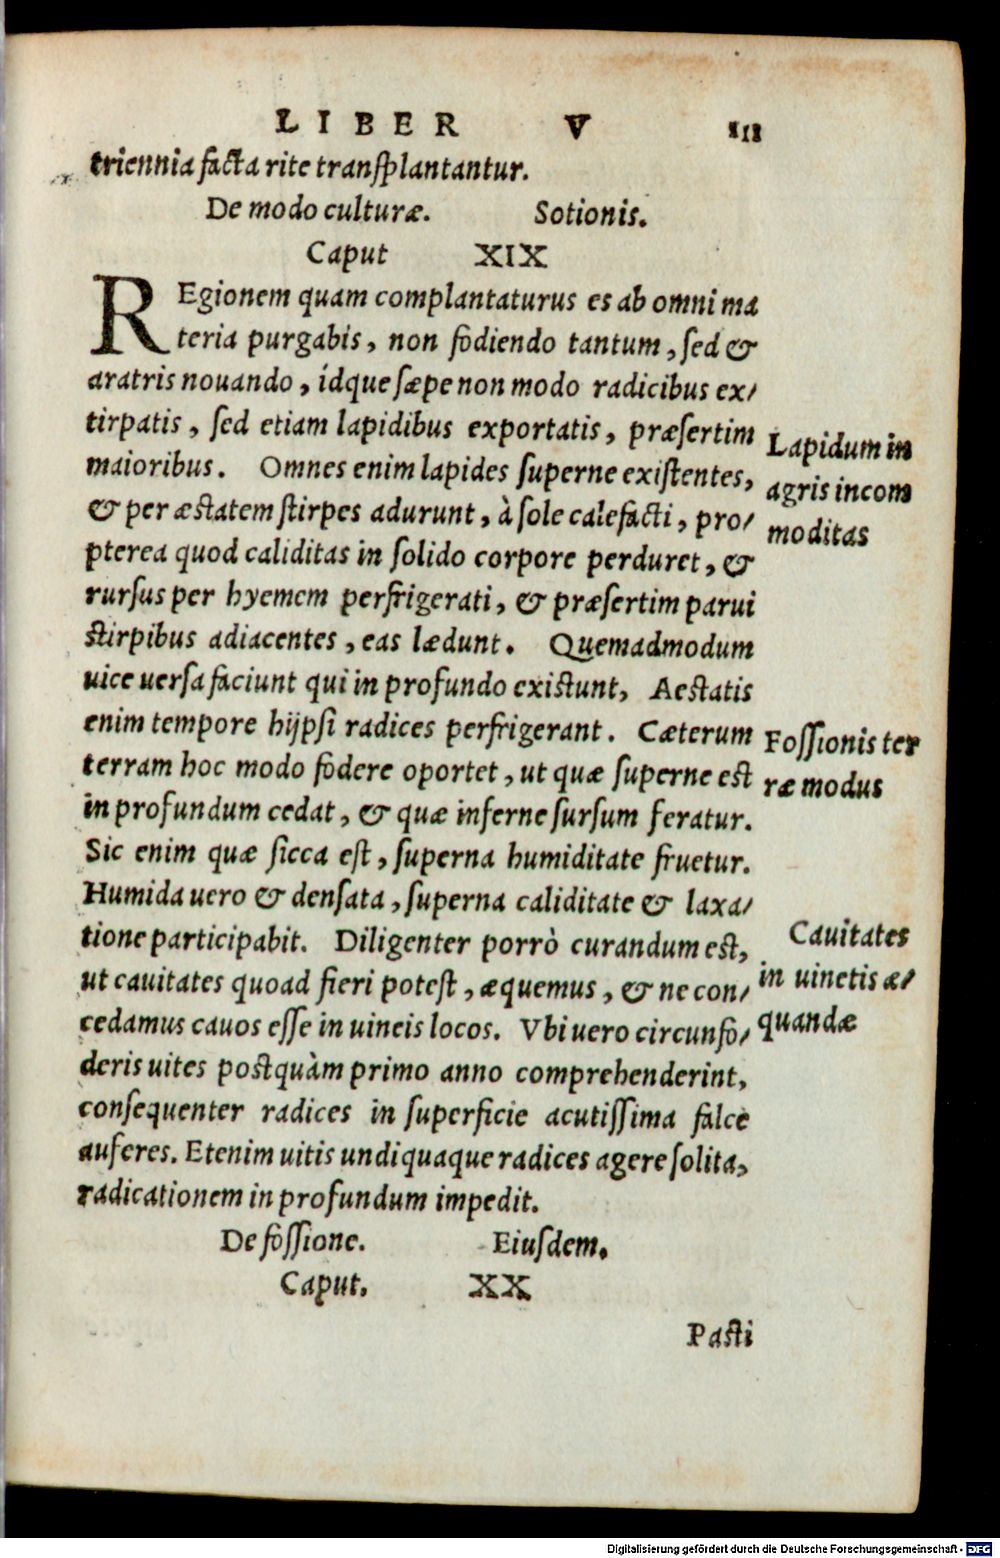 LIBER V 111
triennia facta rite transplantantur.
De modo culturæ. Sotionis.
Caput XIX
REgionem quam complantaturus es ab omni ma
teria purgabis, non fodiendo tantum, sed &
aratris nouando, idque sæpe non modo radicibus ex/
tirpatis, sed etiam lapidibus exportatis, præsertim
maioribus. Omnes enim lapides superne existentes,
& per æstatem stirpes adurunt, à sole calefacti, pro/
pterea quod caliditas in solido corpore perduret, &
rursus per hyemem perfrigerati, & præsertim parui
stirpibus adiacentes, eas lædunt. Quemadmodum
uice uersa faciunt qui in profundo existunt, Aestatis
enim tempore hijpsi radices perfrigerant. Cæterum
terram hoc modo fodere oportet, ut quæ superne est
in profundum cedat, & quæ inferne sursum feratur.
Sic enim quæ sicca est, superna humiditate fruetur.
Humida uero & densata, superna caliditate & laxa/
tione participabit. Diligenter porrò curandum est,
ut cauitates quoad fieri potest, æquemus, & ne con/
cedamus cauos esse in uineis locos. Vbi uero circunfo/
deris uites postquàm primo anno comprehenderint,
consequenter radices in superficie acutissima falce
auferes. Etenim uitis undiquaque radices agere solita,
radicationem in profundum impedit.
De fossione. Eiusdem.
Caput. XX
Pasti
Lapidum in
agris incom
moditas
Fossionis ter
ræ modus
Cauitates
in uinetis æ/
quandæ
Digitalisierung gefördert durch die Deutsche Forschungsgemeinschaft - DFG